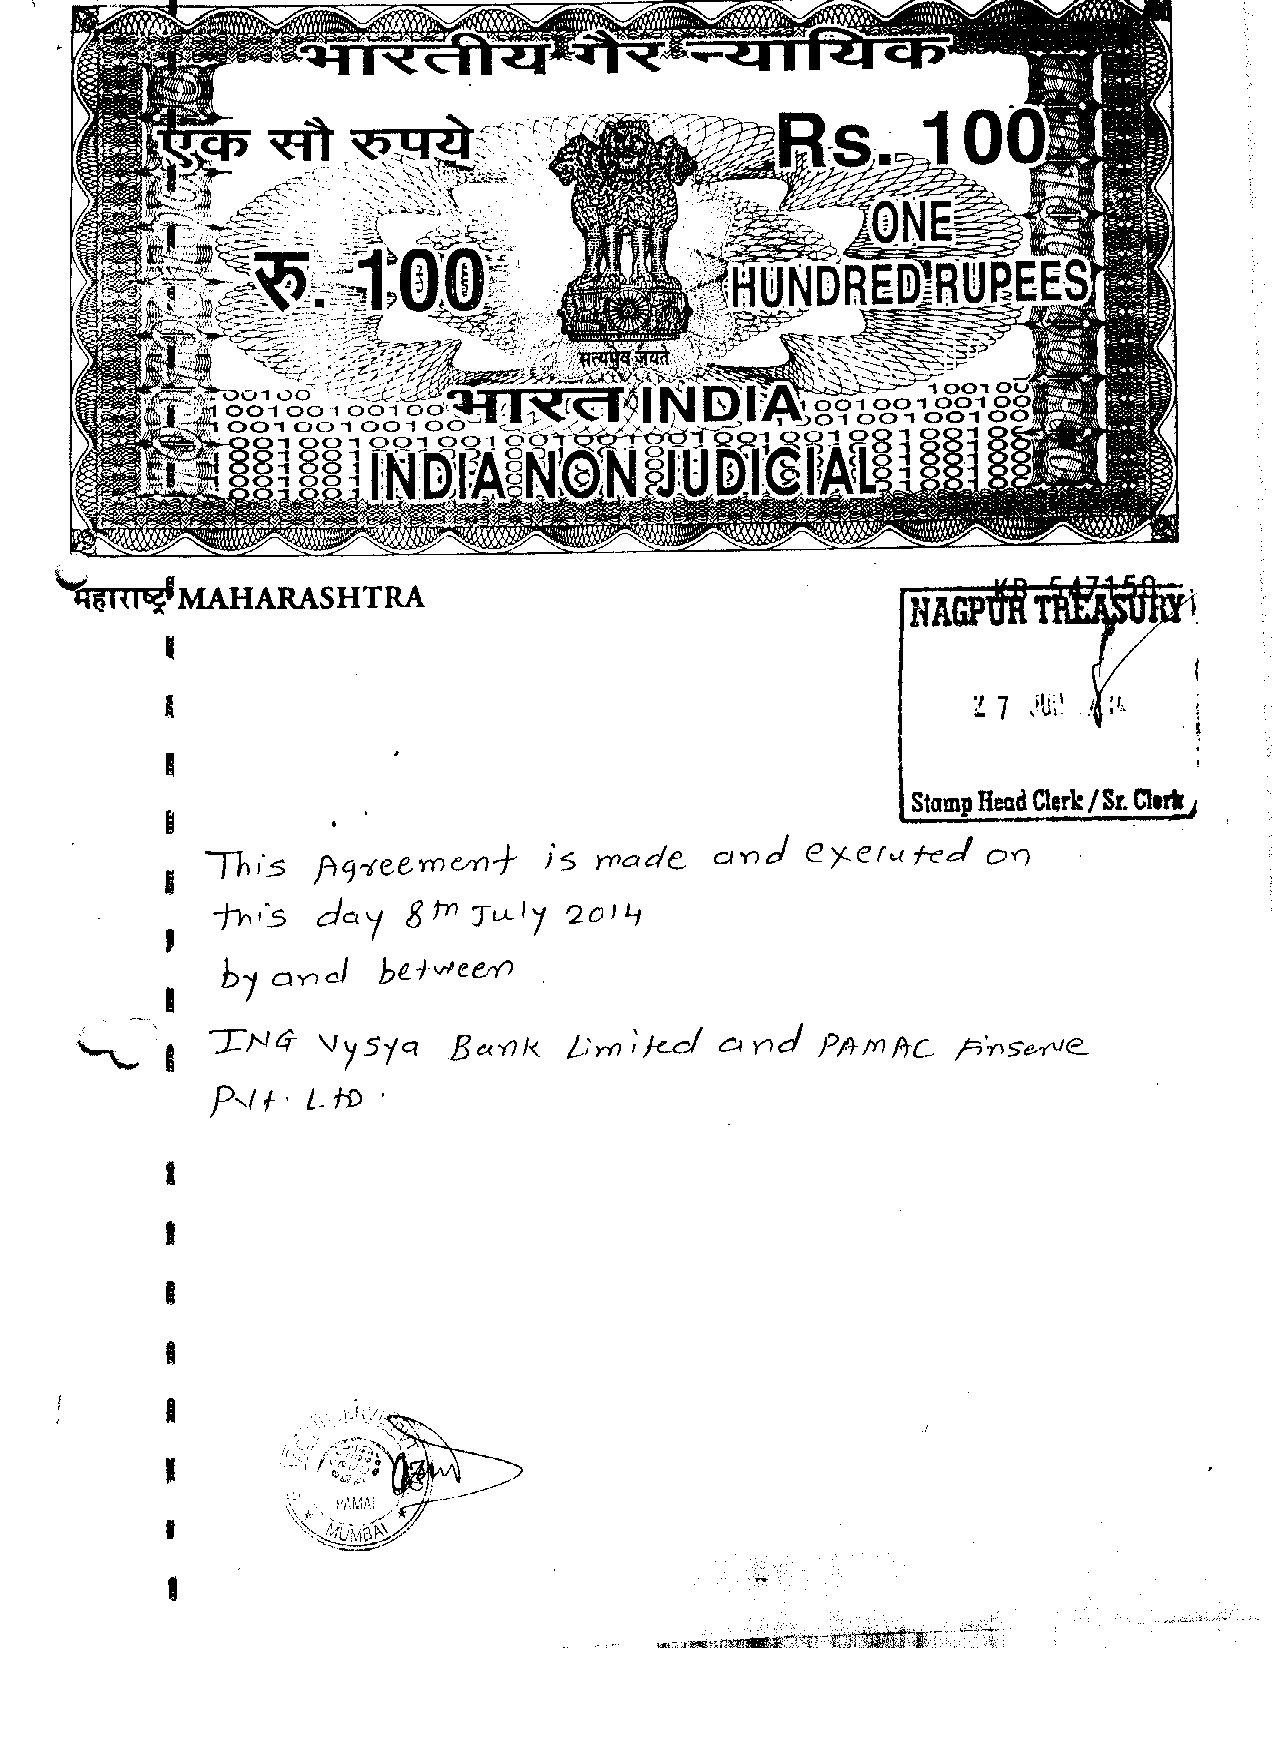 भारतीय गैर न्यायिक
एक सौ रुपये
Rs. 100
रु. 100
ONE
HUNDRED RUPEES
सत्यमेव जयते
भारत INDIA
INDIA NON JUDICIAL
महाराष्ट्र MAHARASHTRA
NAGPUR TREASURY
27
Stamp Head Clerk / Sr. Clerk
This Agreement is made and executed on
this day 8th July 2014
by and between
ING Vysya Bank Limited and PAMAC Finserve
Pvt. LtD.
MUMBAI